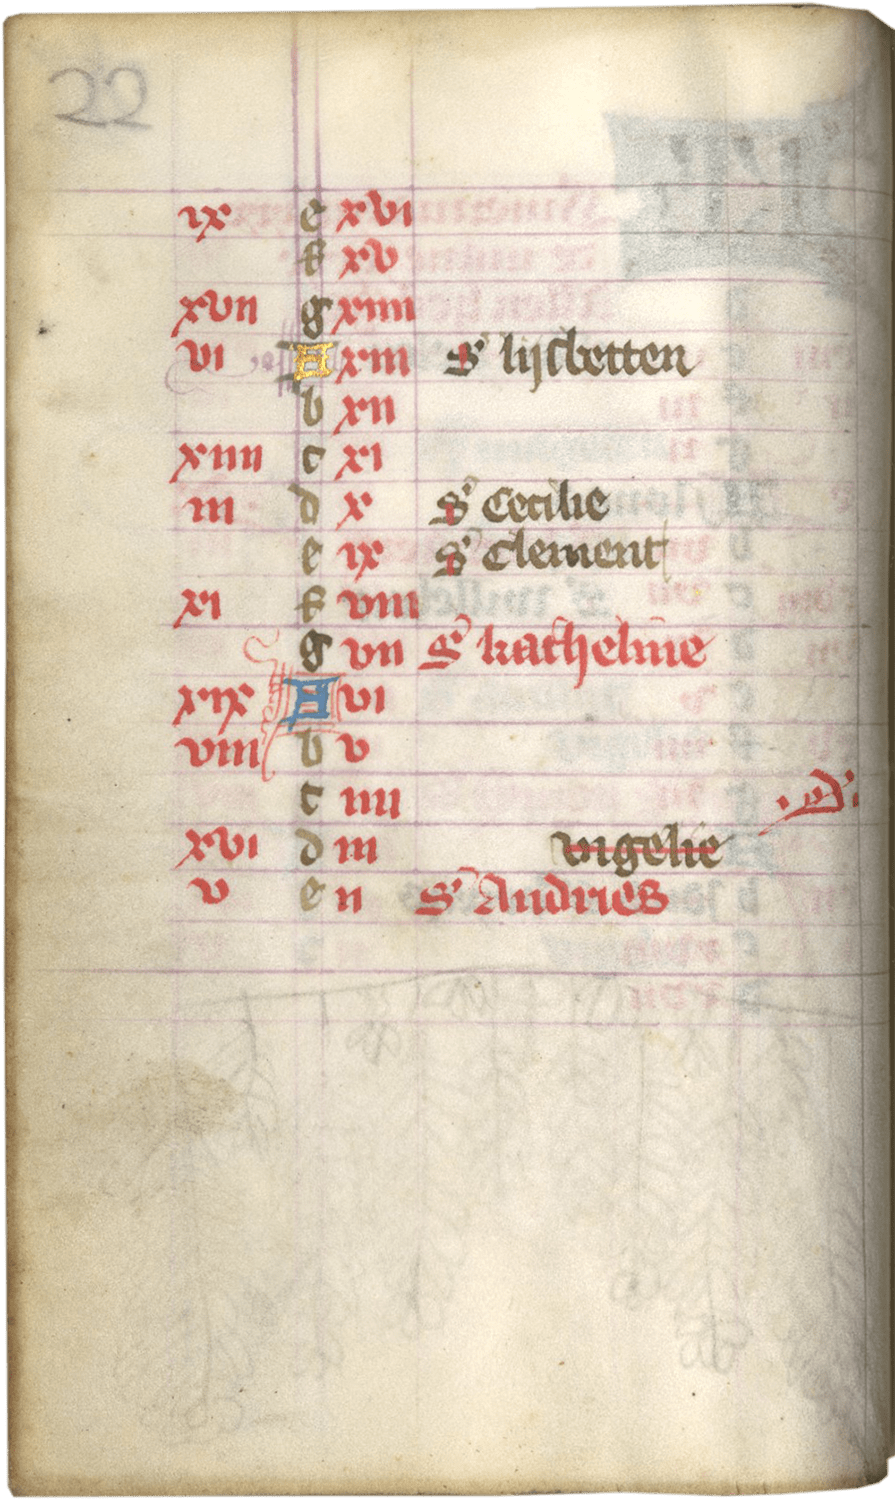 22
ix e xvi
f xv
xvii g xiiii
vi A xiii S' lijsbetten
b xii
xiiii c xi
iii d x S' Cecilie
e ix S' Clement
xi f viii
g vii S' katheline
xix A vi
viii b v
c iiii
xvi d iii vigelie
v e ii S' Andries